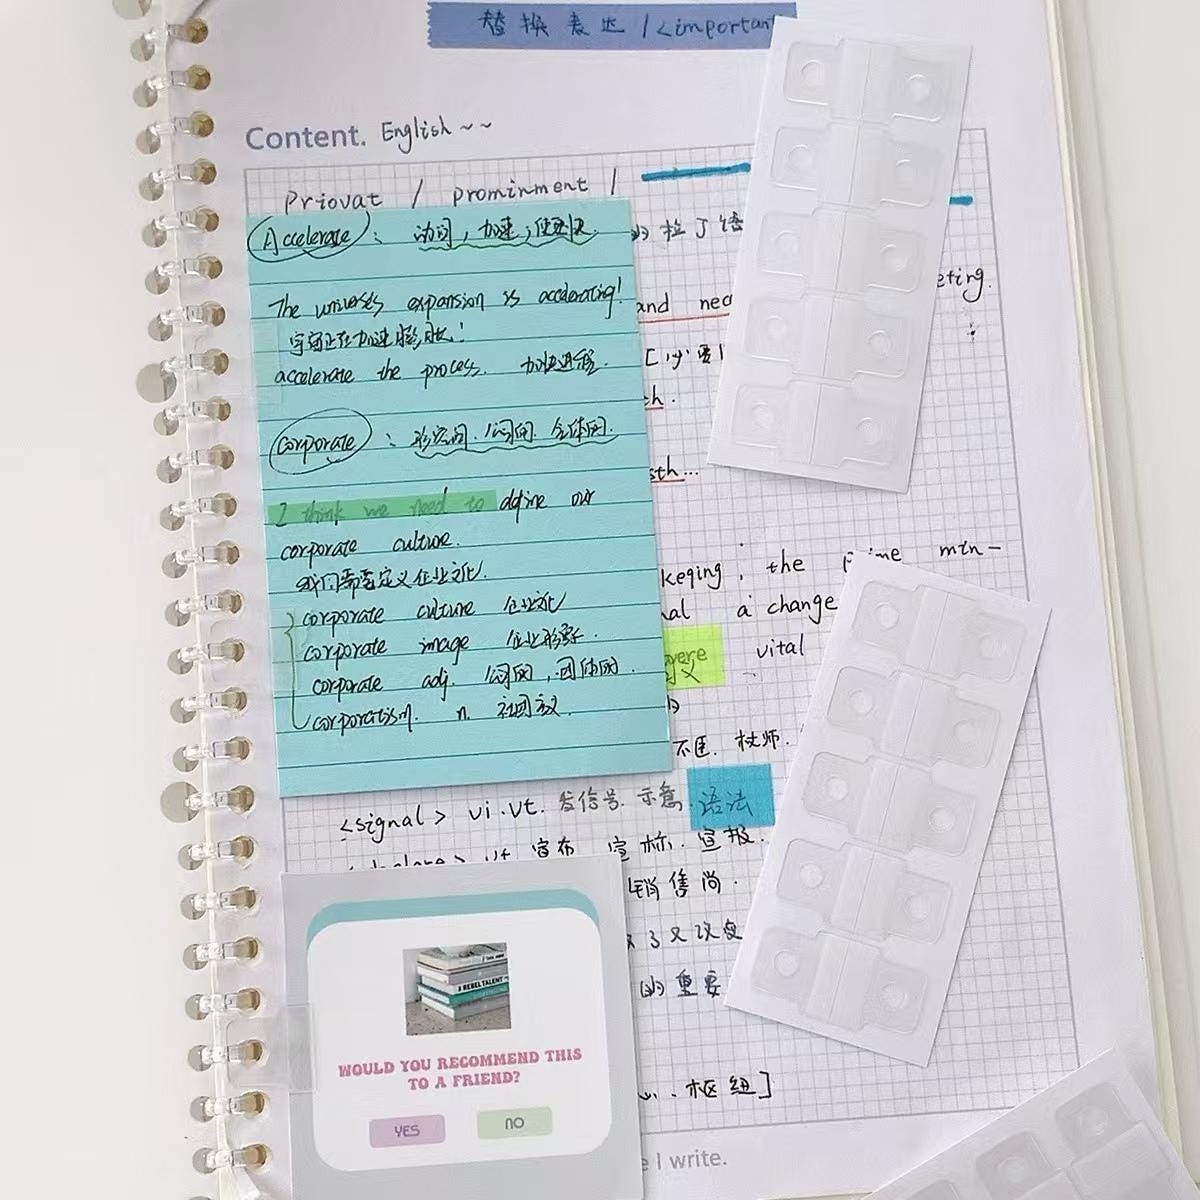 替换表达/<important
Content. English~~
Priovat / prominment /
Accelerate: 动词, 加速; 使加快.
的 拉丁语
The universes expansion is accelerating!
宇宙正在加速膨胀!
and nec
eting.
accelerate the process. 加快进程.
[必要]
th.
corporate: 形容词. 公司的. 全体的.
sth...
I think we need to define our
corporate culture.
我们需要定义企业文化.
keqing, the prime min-
corporate culture 企业文化
nal a change
corporate image 企业形象.
vere vital
corporate adj. 公司的, 团体的.
corporatism. n. 社团主义
不匡. 牧师.
<signal> vi.vt. 发信号. 示意. 语法
<declare> vt 宣布 宣称. 宣报.
销售尚.
3 REBEL TALENT
了又改变
的重要
WOULD YOU RECOMMEND THIS
TO A FRIEND?
YES NO
枢纽]
e I write.